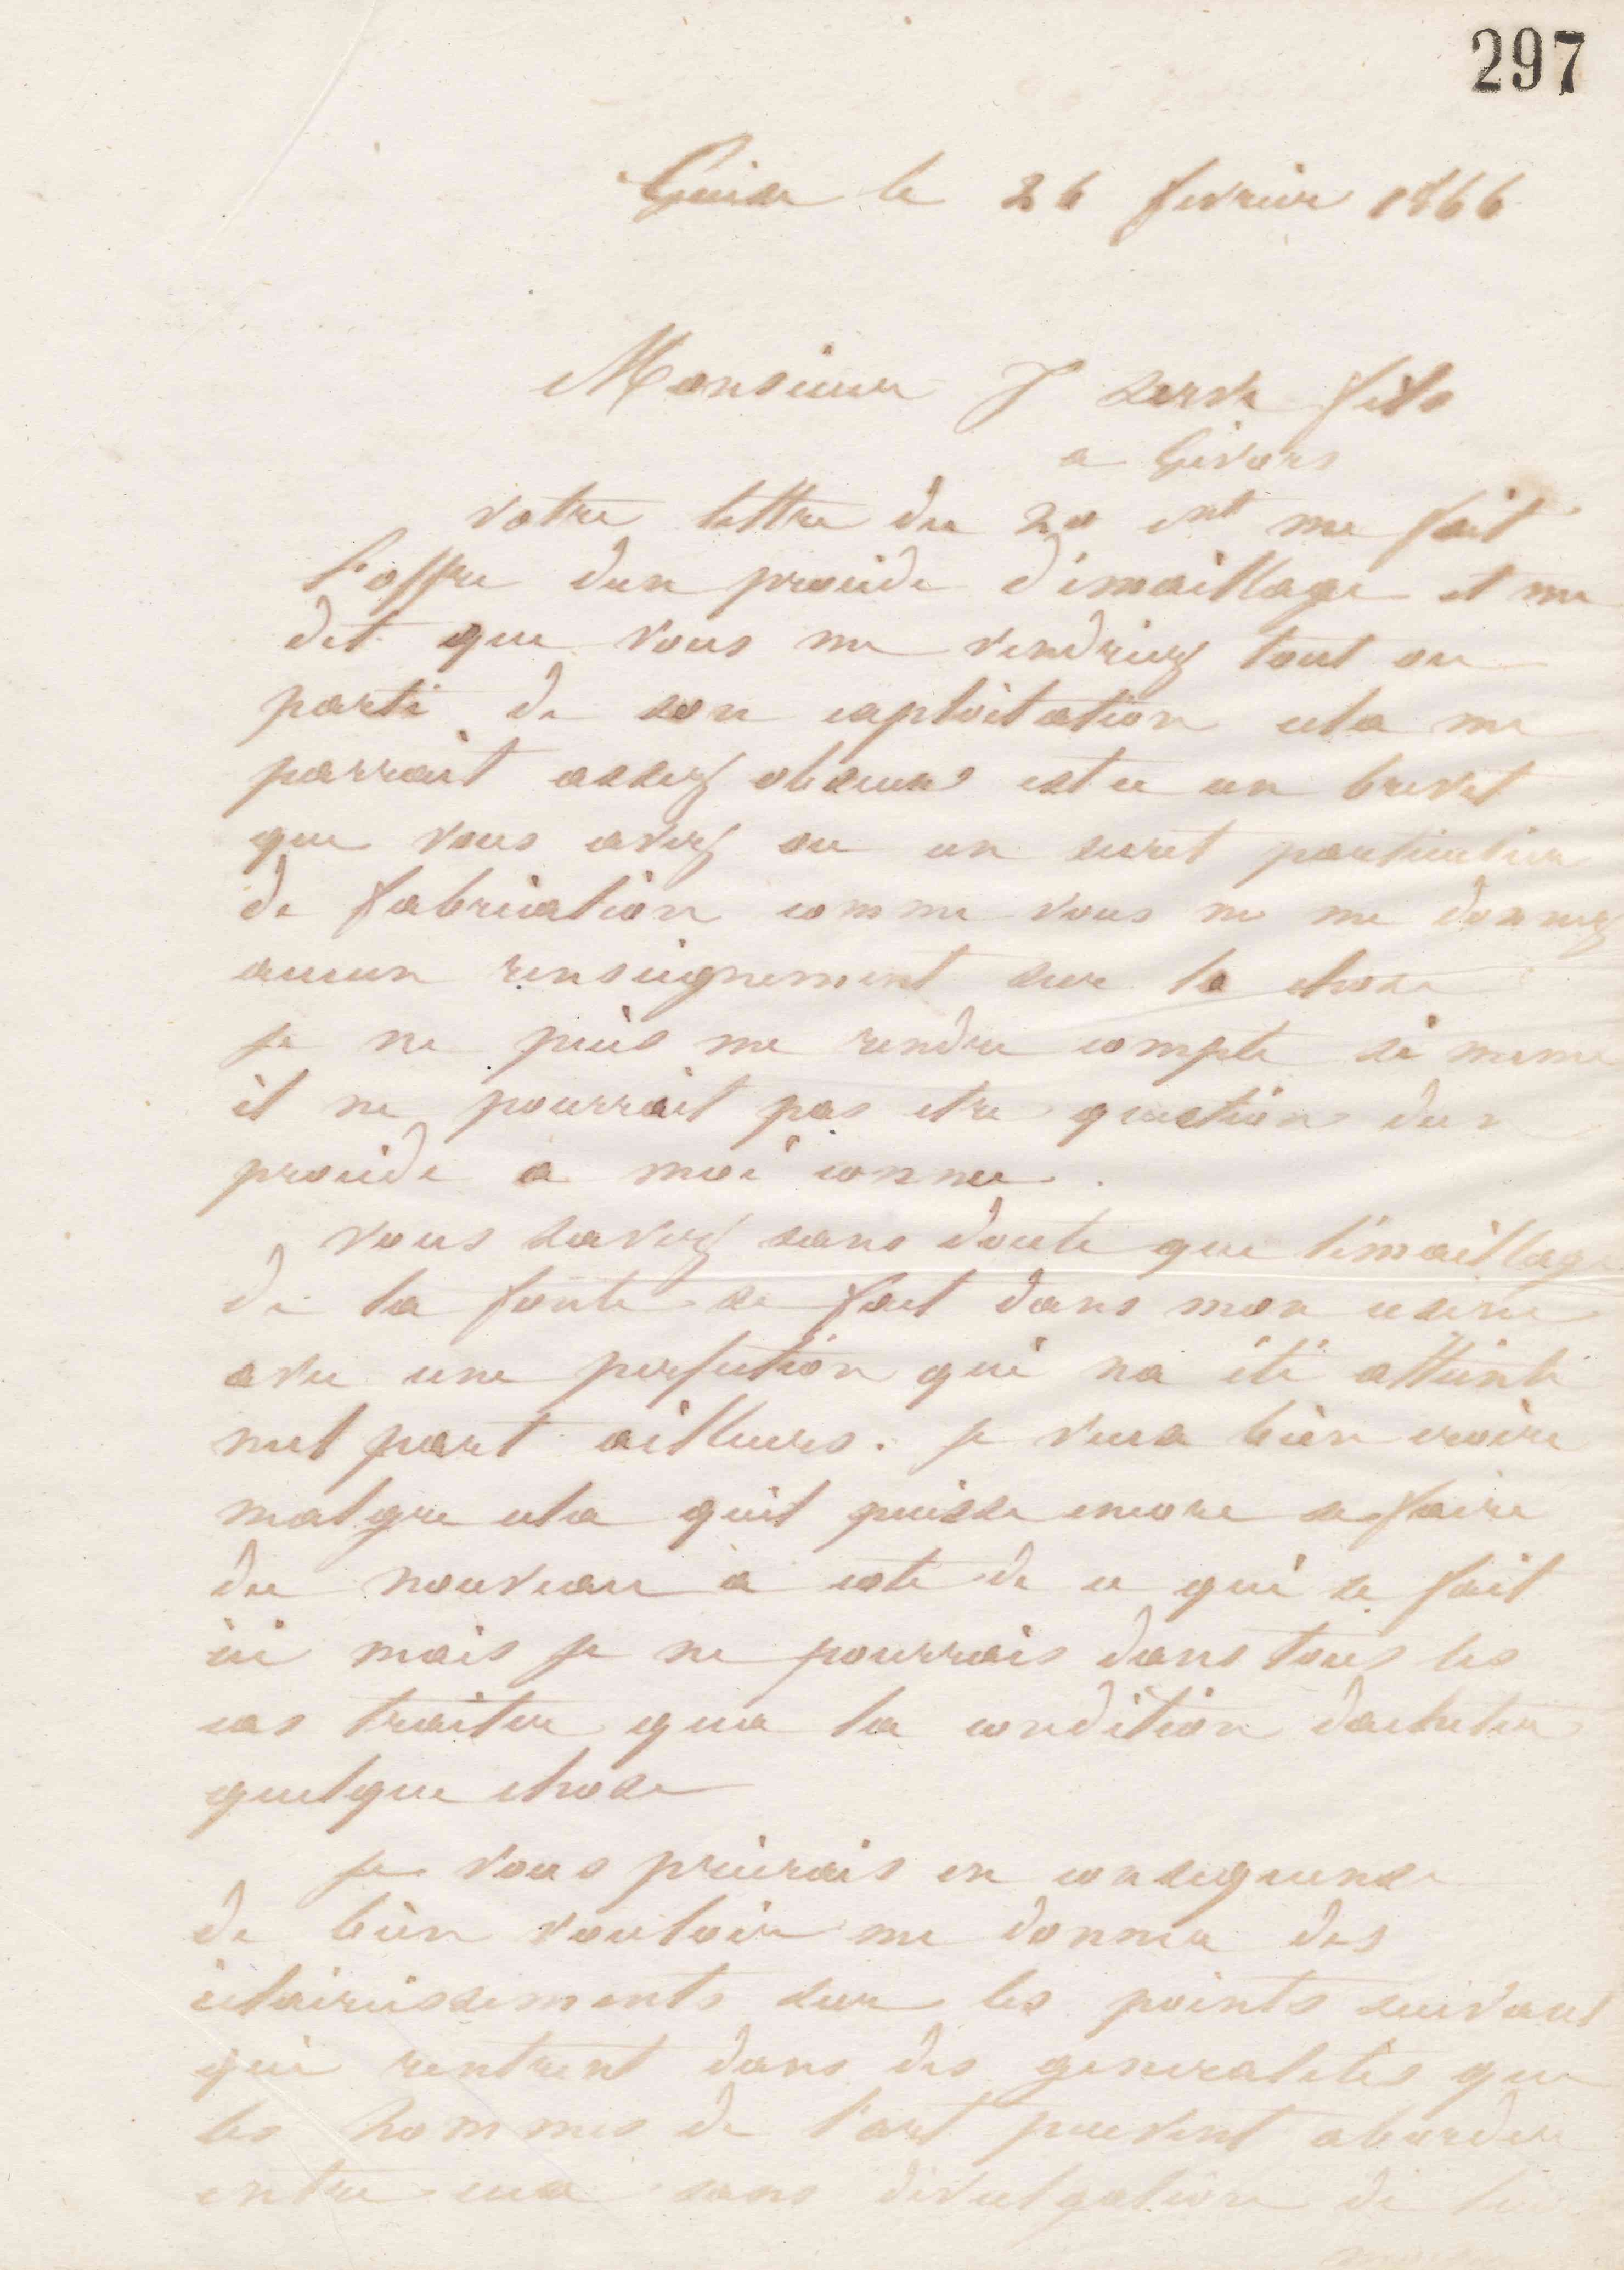 297
Guise le 26 fevrier 1866
Monsieur J Serve fils
a Givors
votre lettre du 20 ct me fait
l'offre dun procede d'émaillage et me
dit que vous me vendriez tout ou
partie de son exploitation cela me
parrait assez obscure est ce un brevet
que vous avez ou un secret particulier
de fabrication comme vous ne me donnez
aucun renseignement sur la chose
je ne puis me rendre compte si meme
il ne pourrait pas etre question dun
procede a moi connu.
vous savez sans doute que l'émaillage
de la fonte se fait dans mon usine
avec une perfection qui na été atteinte
nul part ailleurs. je veux bien croire
malgre cela quil puisse encore se faire
du nouveau a coté de ce qui se fait
ici mais je ne pourrais dans tous les
cas traiter qua la condition dacheter
quelque chose
je vous prierais en consequense
de bien vouloir me donner des
éclaircissements sur les points suivant
qui rentrent dans des generalités que
les hommes de l'art peuvent aborder
entre eux sans divulgation de